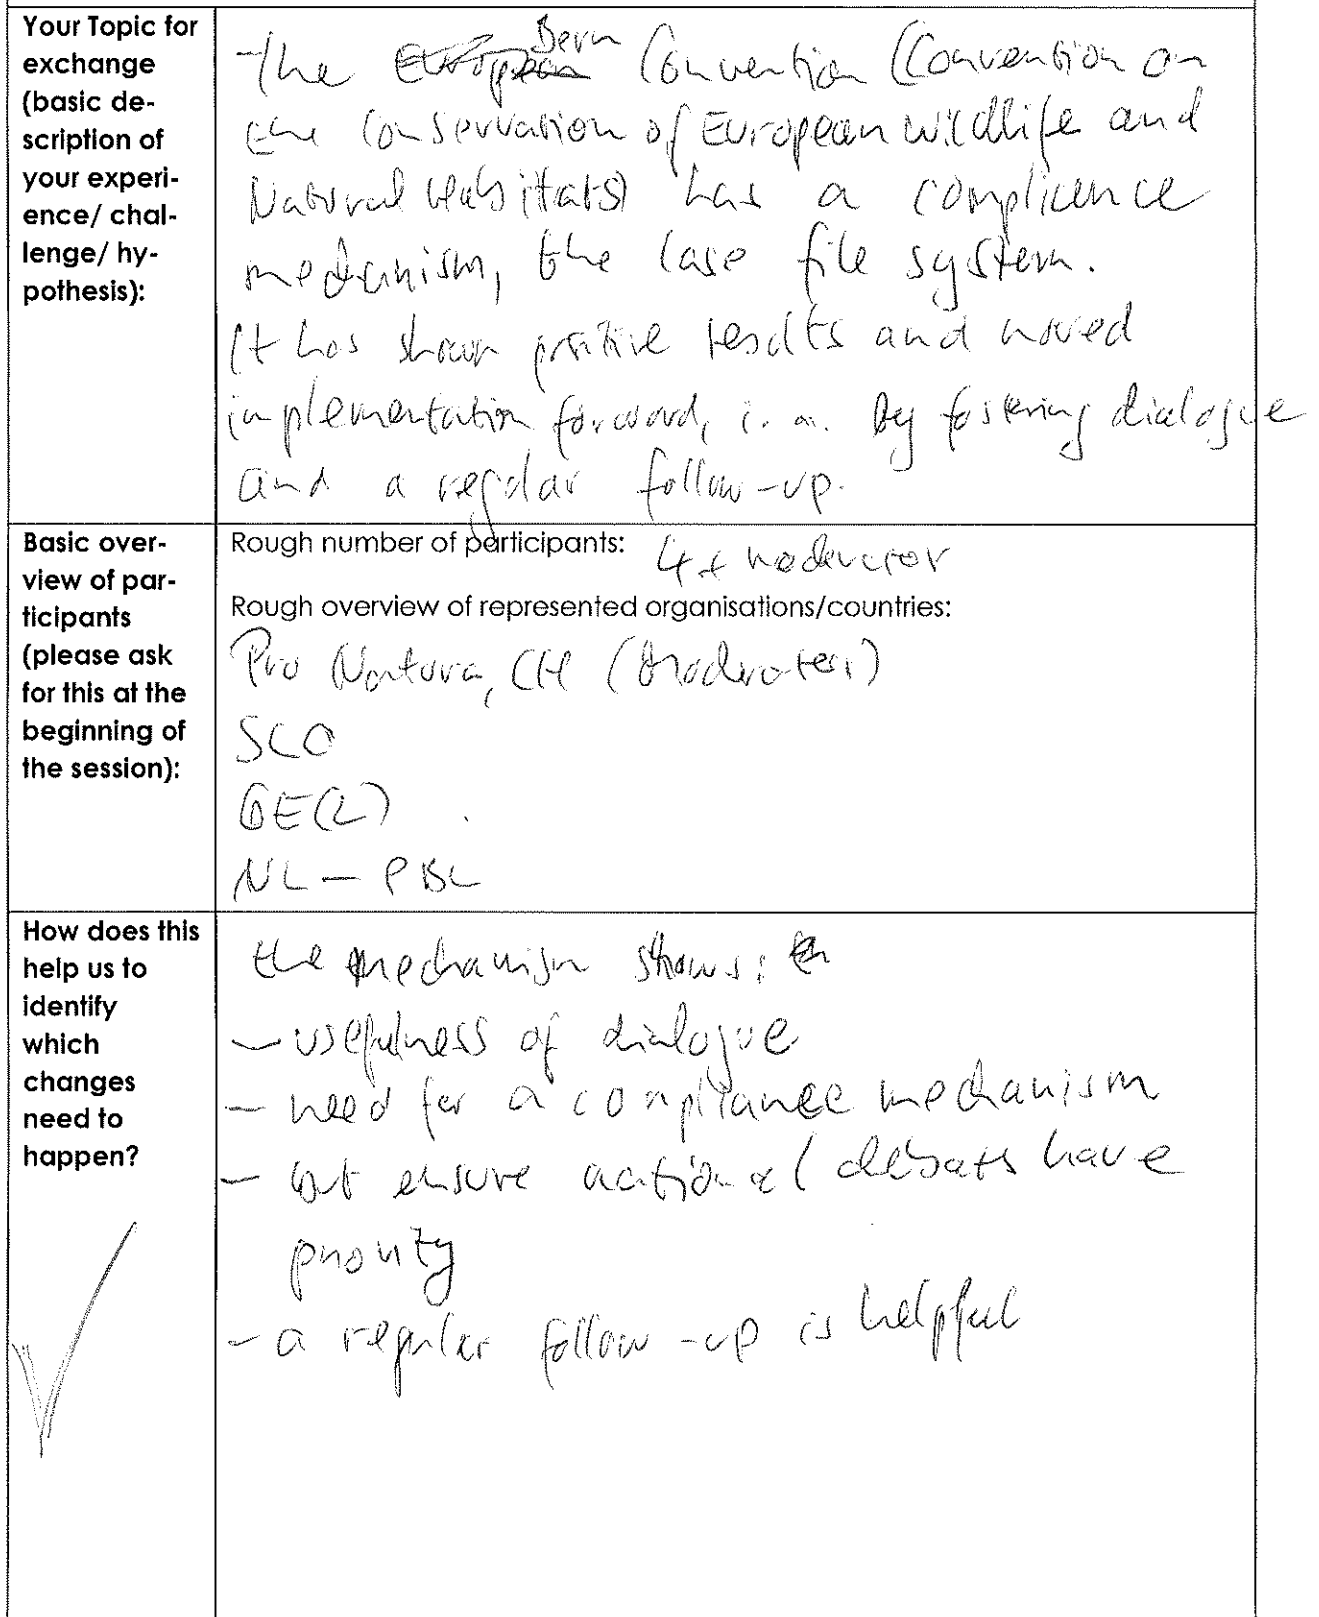 Your Topic for
exchange
(basic de-
scription of
your experi-
ence/ chal-
lenge/ hy-
pothesis):
The European Bern Convention (Convention on
the Conservation of European Wildlife and
Natural Habitats) has a complience
mechanism, the case file system.
It has shown positive results and moved
implementation forward, i. a. by fostering dialogue
and a regular follow-up.
Basic over-
view of par-
ticipants
(please ask
for this at the
beginning of
the session):
Rough number of participants: 4 + moderator
Rough overview of represented organisations/countries:
Pro Natura, CH (Moderator)
SCO
GE(2)
NL - PBL
How does this
help us to
identify
which
changes
need to
happen?
the mechanism shows:
- usefulness of dialogue
- need for a compliance mechanism
- but ensure national debats have
priority
- a regular follow-up is helpful